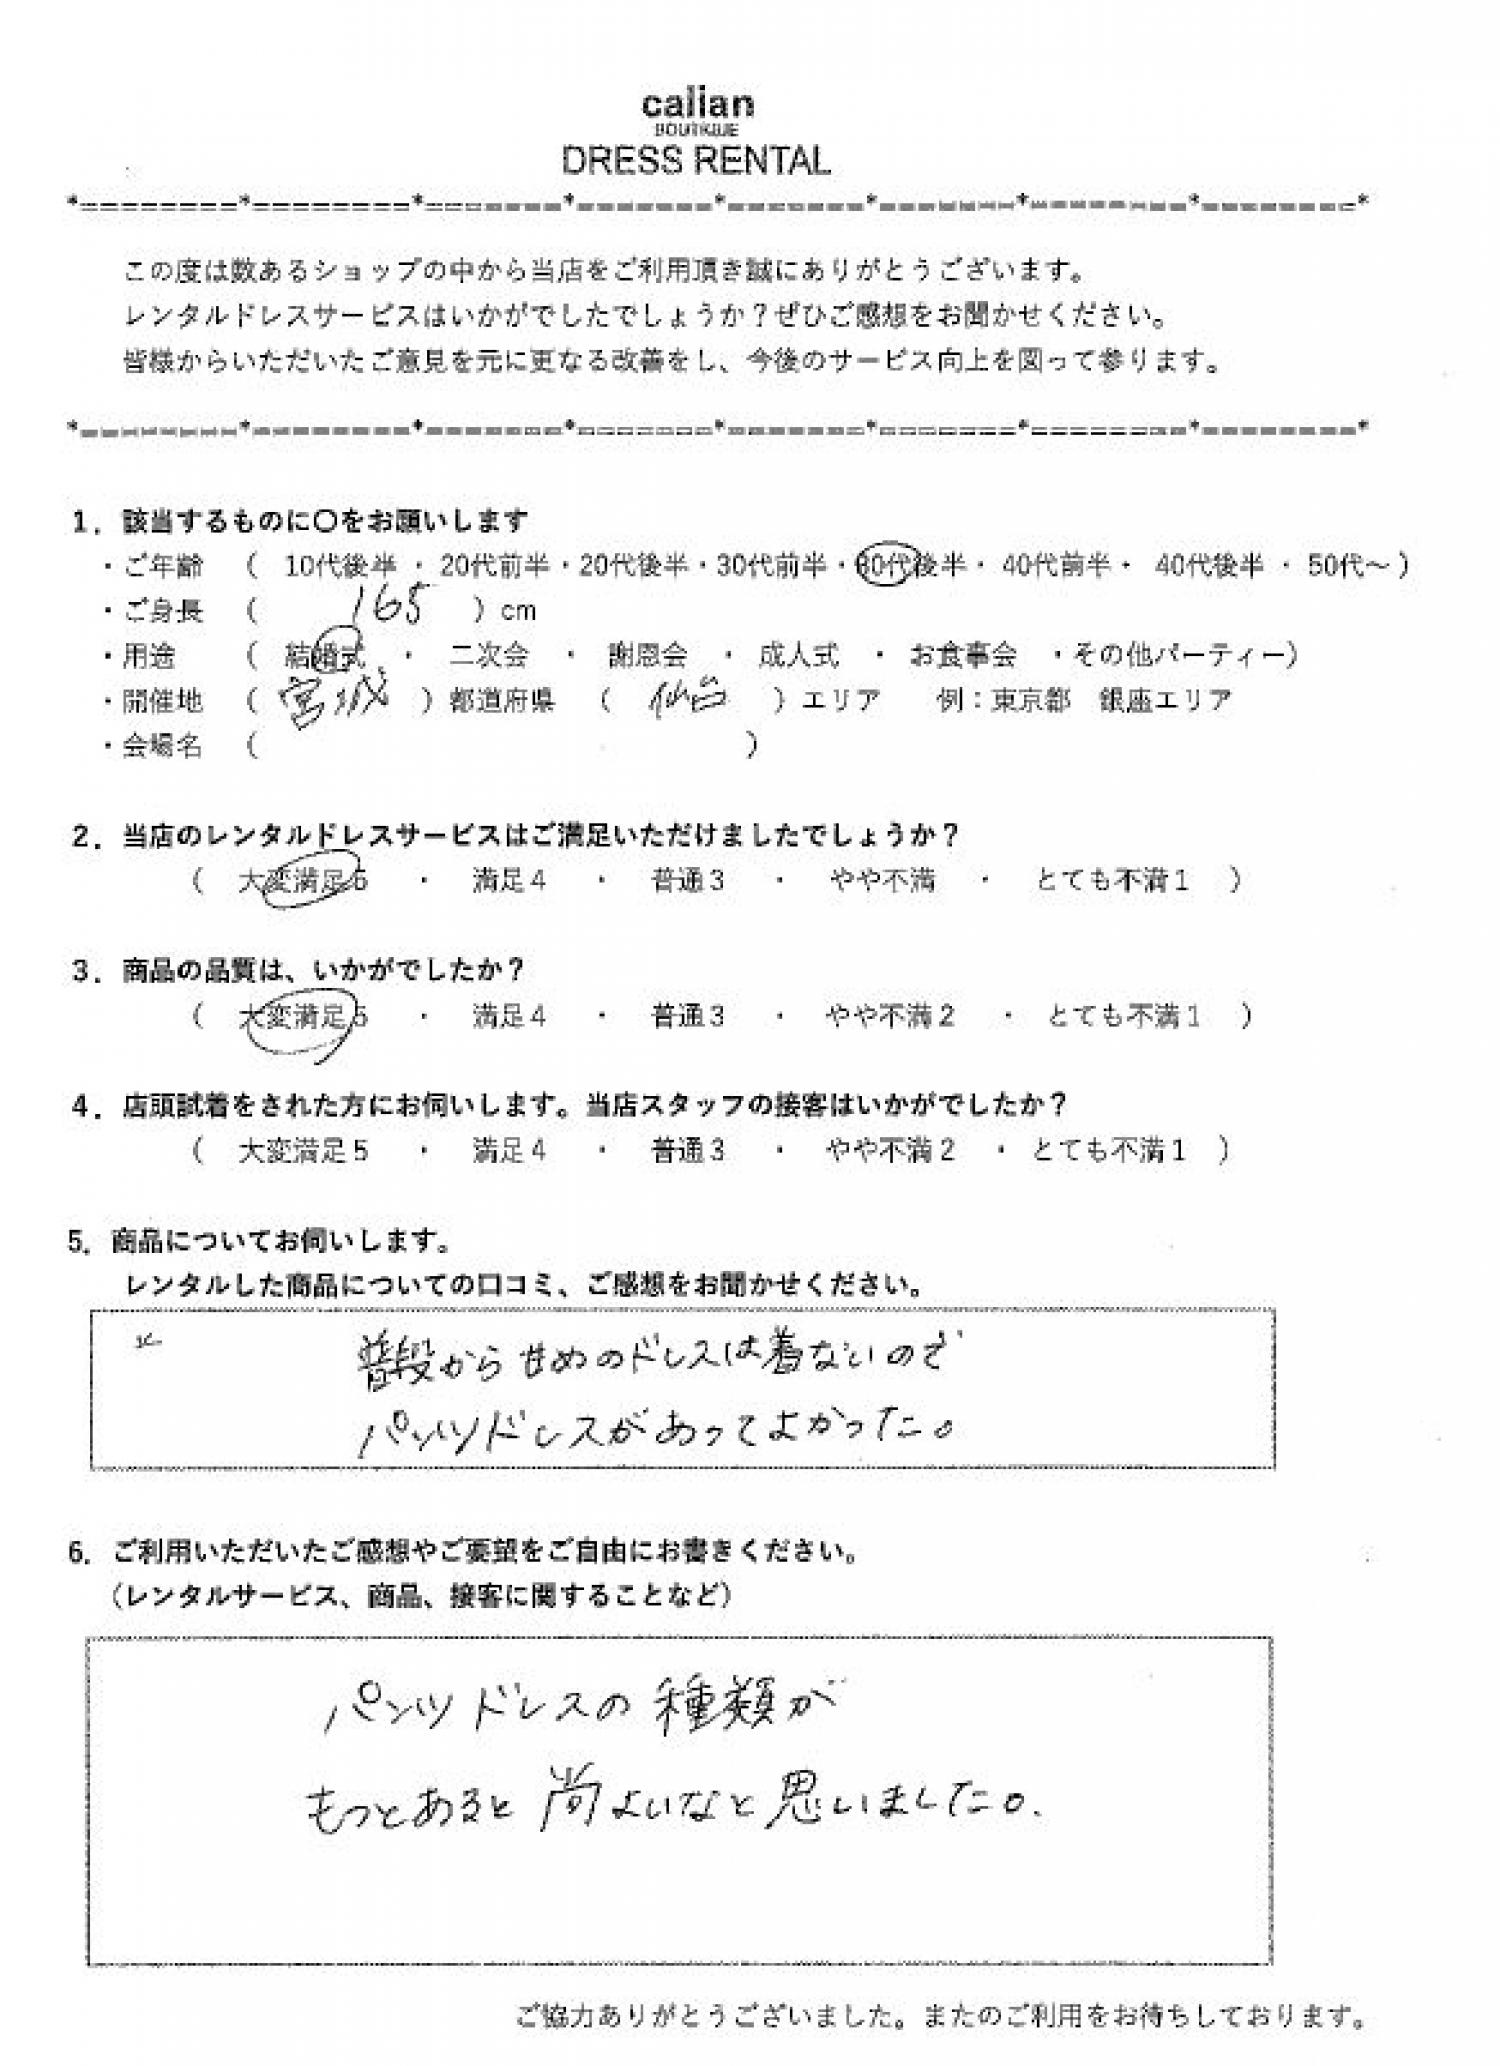 calian
BOUTIQUE
DRESS RENTAL
*========*========*=======*=======*=======*=======*========*========*
この度は数あるショップの中から当店をご利用頂き誠にありがとうございます。
レンタルドレスサービスはいかがでしたでしょうか？ぜひご感想をお聞かせください。
皆様からいただいたご意見を元に更なる改善をし、今後のサービス向上を図って参ります。
*========*========*=======*=======*=======*=======*========*========*
1．該当するものに〇をお願いします
・ご年齢 （ 10代後半 ・ 20代前半・20代後半・30代前半・30代後半・ 40代前半・ 40代後半 ・ 50代～ ）
・ご身長 （ 165 ）cm
・用途 （ 結婚式 ・ 二次会 ・ 謝恩会 ・ 成人式 ・ お食事会 ・その他パーティー）
・開催地 （ 宮城 ）都道府県 （ 仙台 ）エリア 例：東京都 銀座エリア
・会場名 （ ）
2．当店のレンタルドレスサービスはご満足いただけましたでしょうか？
（ 大変満足5 ・ 満足4 ・ 普通3 ・ やや不満 ・ とても不満1 ）
3．商品の品質は、いかがでしたか？
（ 大変満足5 ・ 満足4 ・ 普通3 ・ やや不満2 ・ とても不満1 ）
4．店頭試着をされた方にお伺いします。当店スタッフの接客はいかがでしたか？
（ 大変満足5 ・ 満足4 ・ 普通3 ・ やや不満2 ・ とても不満1 ）
5．商品についてお伺いします。
レンタルした商品についての口コミ、ご感想をお聞かせください。
普段から甘めのドレスは着ないので
パンツドレスがあってよかった。
6．ご利用いただいたご感想やご要望をご自由にお書きください。
（レンタルサービス、商品、接客に関することなど）
パンツドレスの種類が
もっとあると尚よいなと思いました。
ご協力ありがとうございました。またのご利用をお待ちしております。